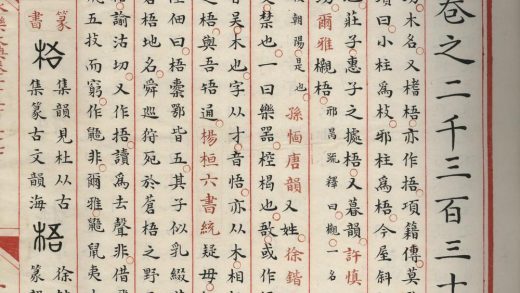 卷之二千三百三十
切木名又榰梧亦作捂項籍傳莫
曰小柱爲枝邪柱爲梧今屋斜
也莊子惠子之據梧又暮韻許慎
功爾雅櫬梧邢昺疏釋曰櫬一名
朝陽是也孫愐唐韻又姓徐鍇
禁也一曰樂器椌楬也敔或作
吾木也字从才音悟亦从木相
梧與吾牾通楊桓六書統疑毋
佃曰梧櫜鄂皆五其子似乳綴
梧地名舜巡狩死於蒼梧之野
諭沽切又作捂讀爲去聲非借
五技而窮作鼯非爾雅鼯鼠夷
篆書
集韻見杜从古
集篆古文韻海